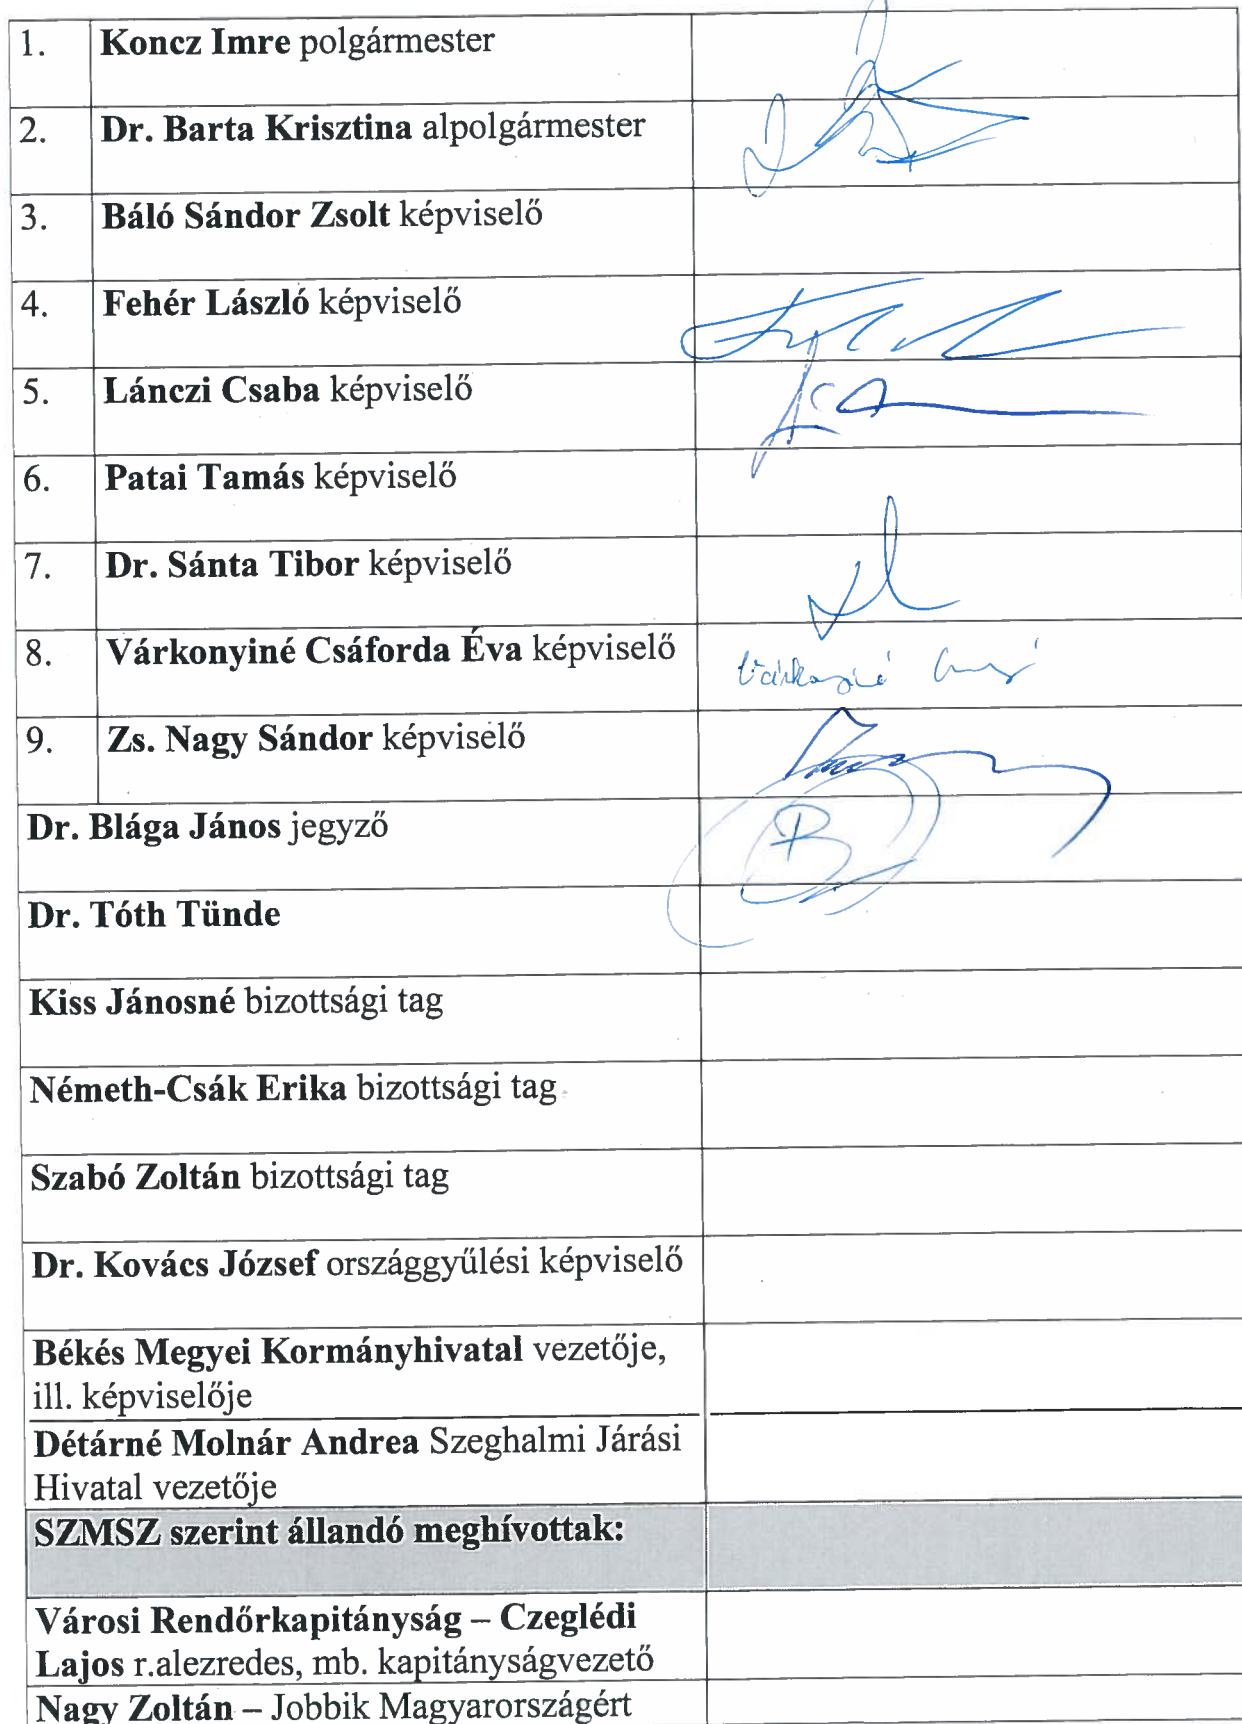 1. Koncz Imre polgármester
2. Dr. Barta Krisztina alpolgármester
3. Báló Sándor Zsolt képviselő
4. Fehér László képviselő
5. Lánczi Csaba képviselő
6. Patai Tamás képviselő
7. Dr. Sánta Tibor képviselő
8. Várkonyiné Csáforda Éva képviselő Várkonyiné
9. Zs. Nagy Sándor képviselő
Dr. Blága János jegyző
Dr. Tóth Tünde
Kiss Jánosné bizottsági tag
Németh-Csák Erika bizottsági tag
Szabó Zoltán bizottsági tag
Dr. Kovács József országgyűlési képviselő
Békés Megyei Kormányhivatal vezetője,
ill. képviselője
Détárné Molnár Andrea Szeghalmi Járási
Hivatal vezetője
SZMSZ szerint állandó meghívottak:
Városi Rendőrkapitányság – Czeglédi
Lajos r.alezredes, mb. kapitányságvezető
Nagy Zoltán – Jobbik Magyarországért